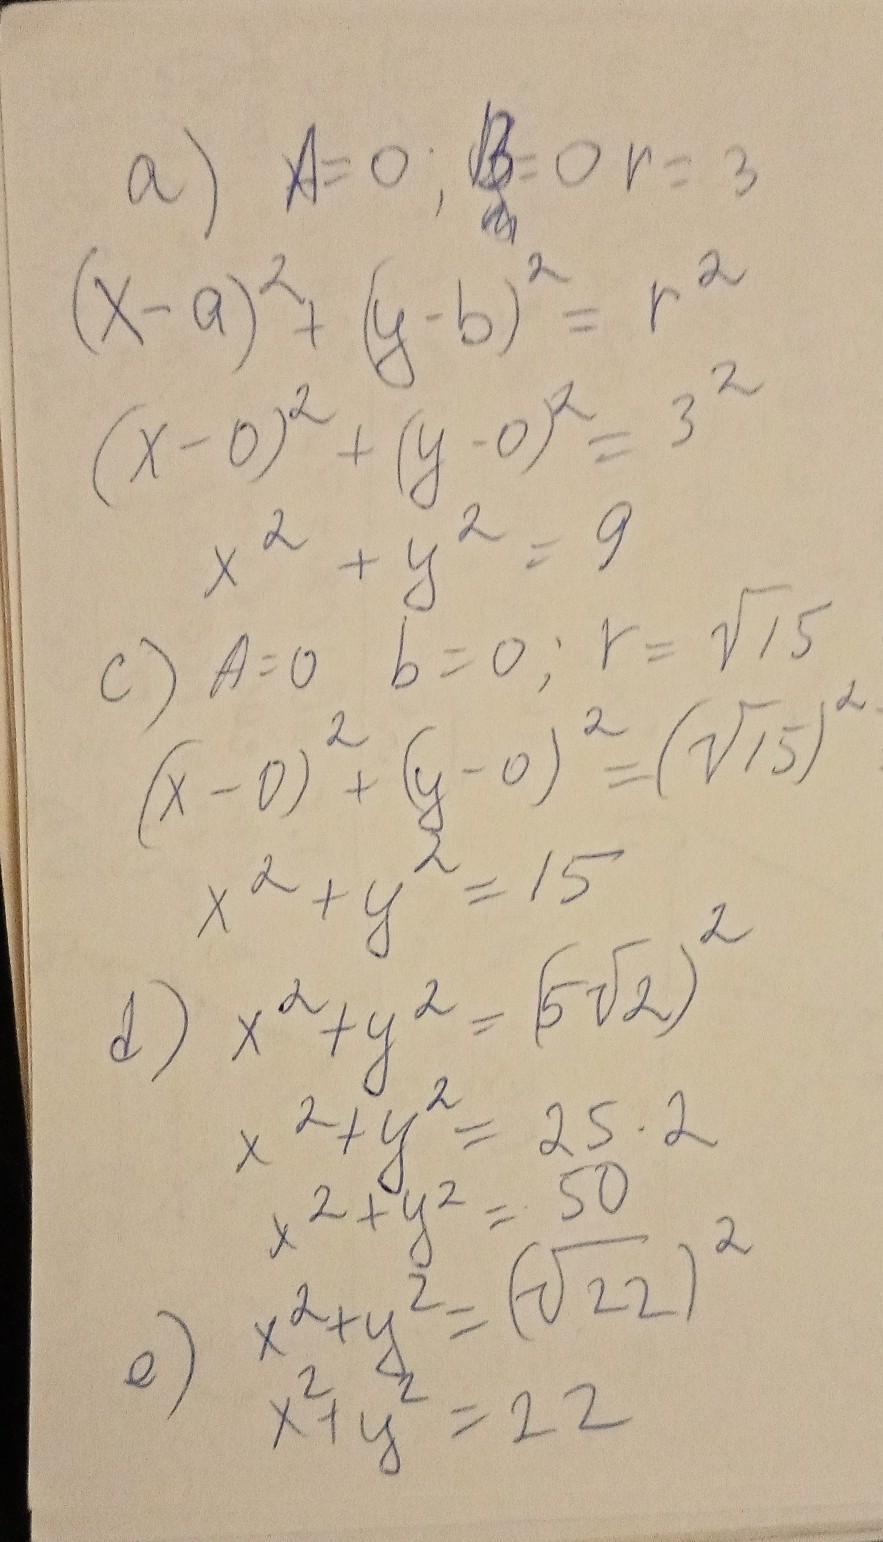 a) A=0; B=0 r=3
(x-a)²+(y-b)²=r²
(x-0)²+(y-0)²=3²
x²+y²=9
c) A=0 b=0; r=√15
(x-0)²+(y-0)²=(√15)²
x²+y²=15
d) x²+y²=(5√2)²
x²+y²=25·2
x²+y²=50
e) x²+y²=(√22)²
x²+y²=22